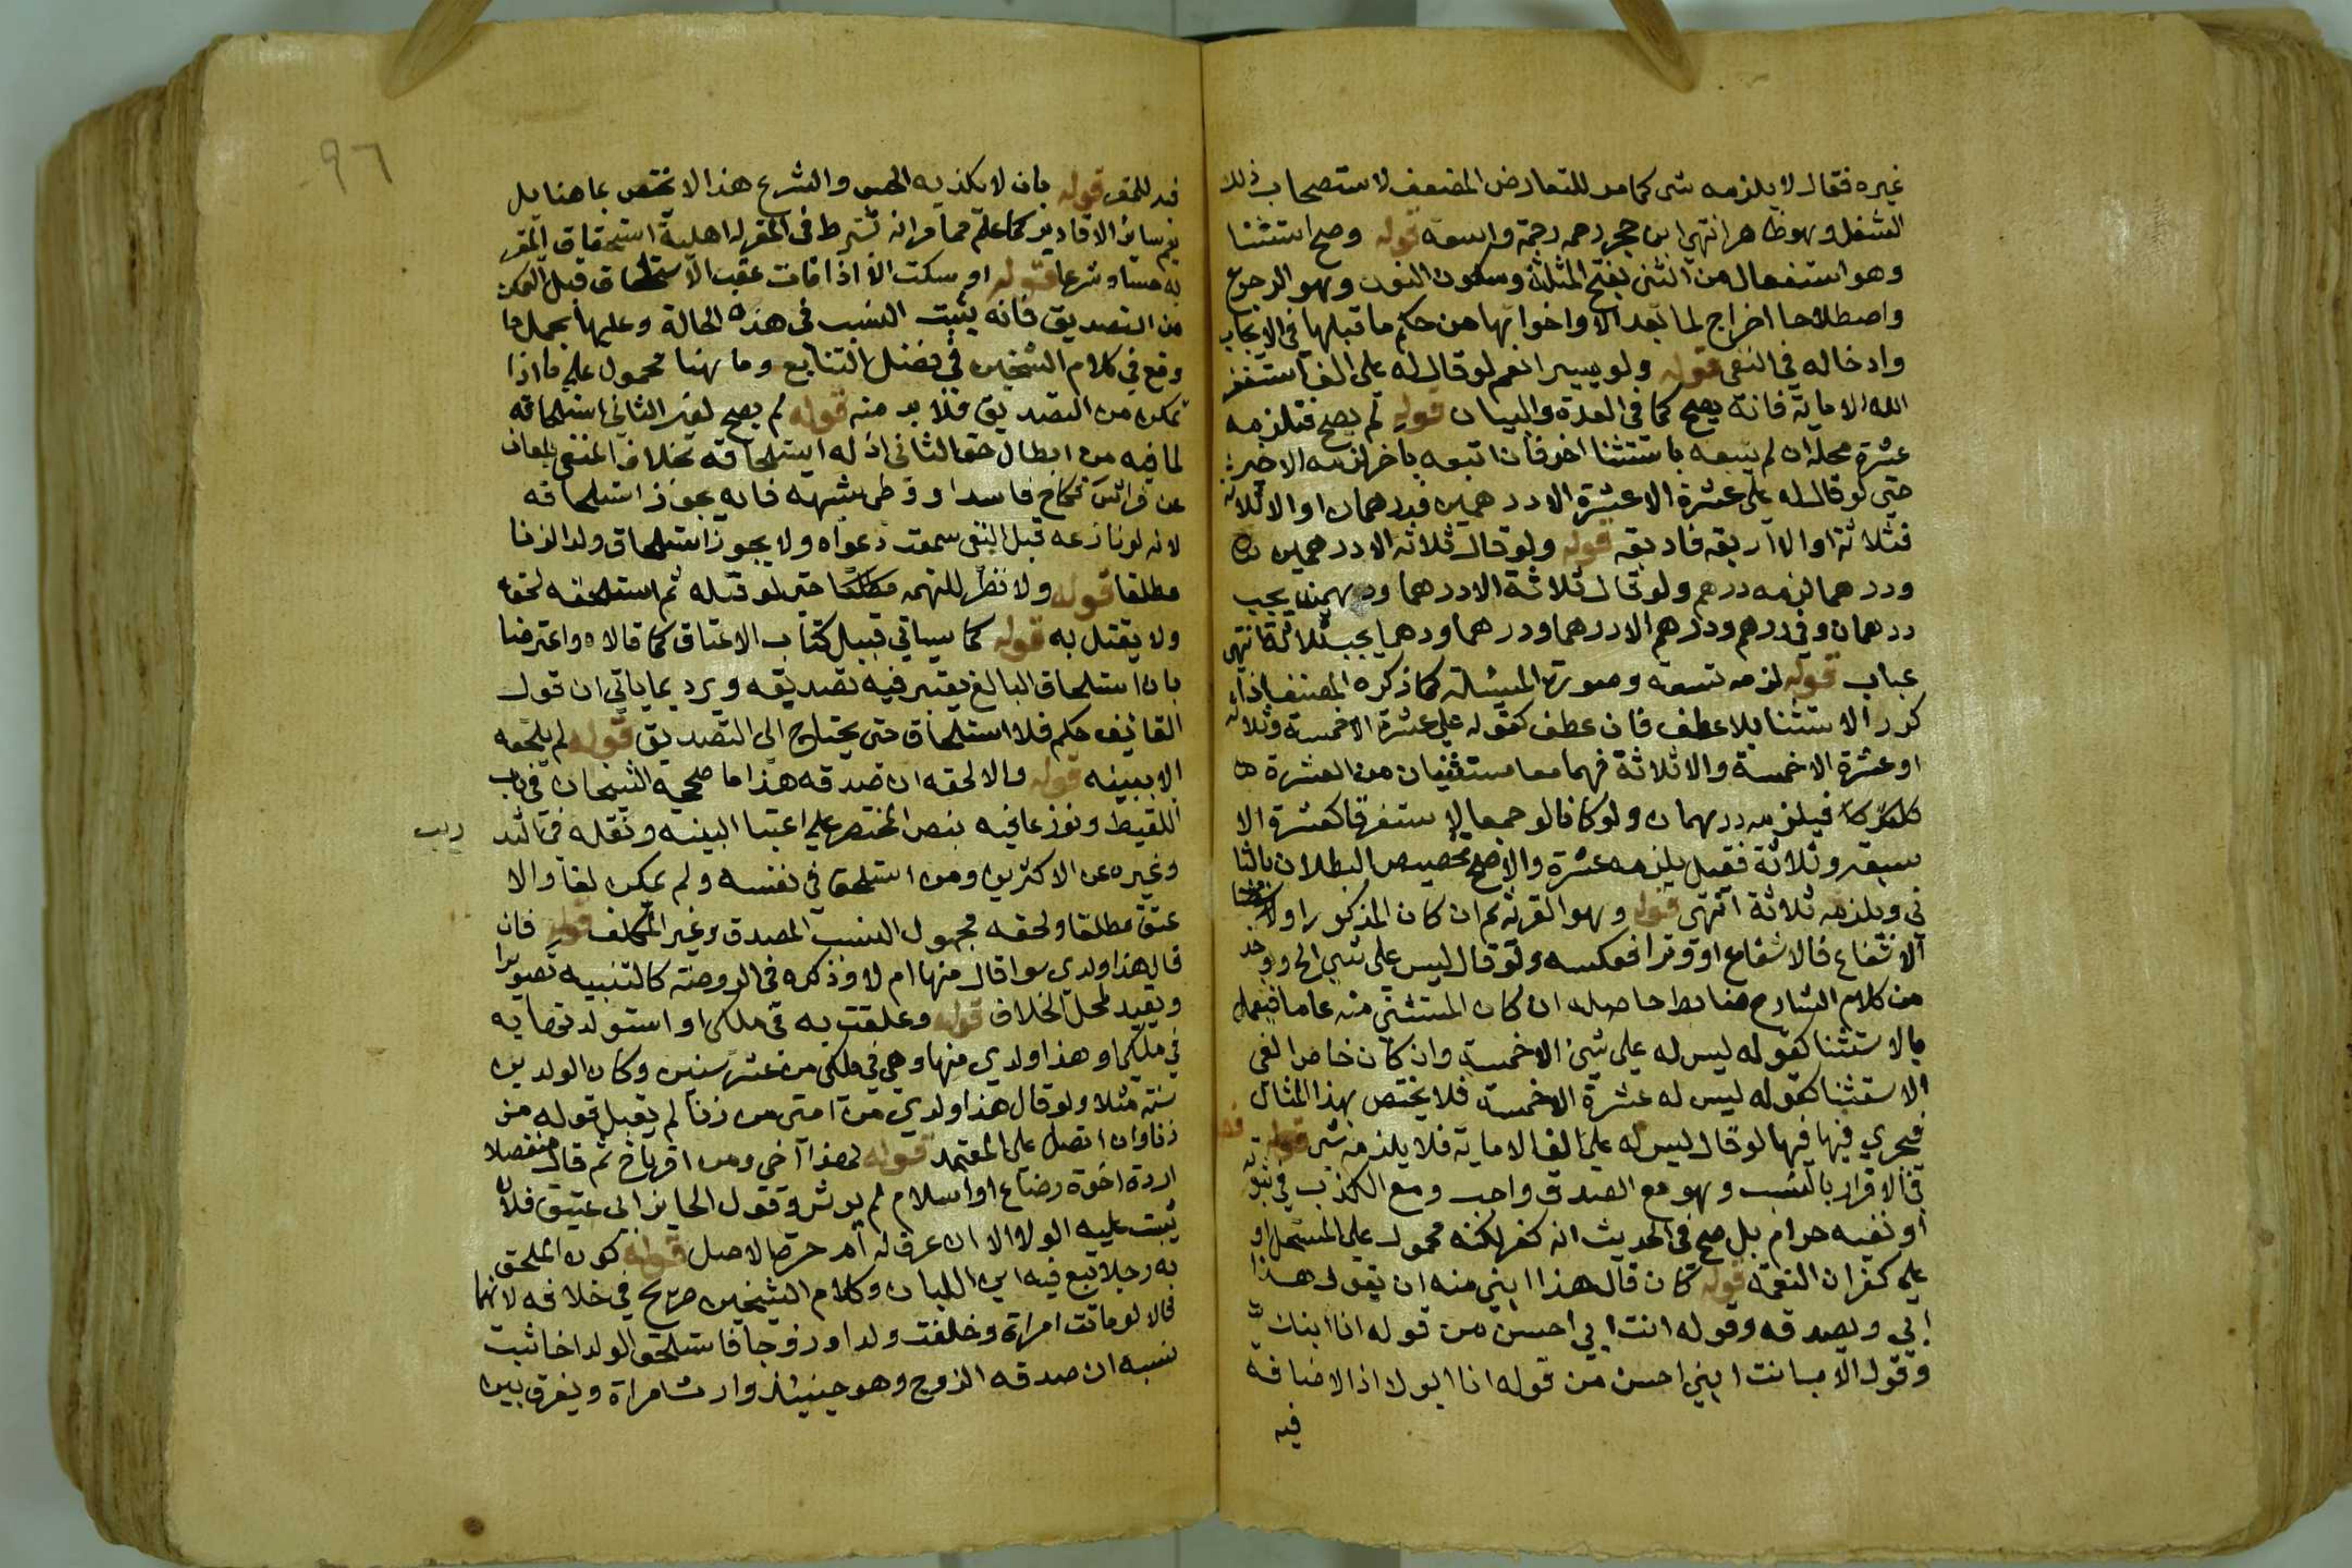 غيره فقال لا يلزمه شى كما مر للتعارض المضعف لاستصحاب ذلك
الشغل وهو ظاهر انتهى ابن حجر رحمه رحمة واسعة قوله وصح استثنا
وهو استفعال من الثنى بفتح المثلثة وسكون النون وهو الرجوع
واصطلاحا اخراج لما بعد الا واخواتها من حكم ما قبلها في الايجاب
وادخاله في النفى قوله ولو يسيرا نعم لو قال له على الف استغفر
الله الا ماية فانه يصح كما في العدة والبيان قوله لم يصح فتلزمه
عشرة محله ان لم يتبعه باستثنا اخر فان اتبعه باخر لزمه الاخير
حتى لو قال له على عشرة الا عشرة الا درهمين فدرهمان او الا ثلاثة
فثلاثة او الا اربعة فاربعة قوله ولو قال ثلاثة الا درهمين
ودرهما لزمه درهم ولو قال ثلاثة الا درهما ودرهمين يجب
درهمان وفي درهم ودرهم ودرهم الا درهما ودرهما ودرهما يجب ثلاثة انتهى
عباب قوله لزمه تسعة وصورة المسئلة كما ذكره المصنف اذا
كرر الاستثنا بلا عطف فان عطف كقوله علي عشرة الا خمسة وثلاثة
او عشرة الا خمسة والا ثلاثة فهما معا مستثنيان من العشرة
فيلزمه درهمان ولو كانا لو جمعا لاستغرقا كعشرة الا
سبعة وثلاثة فقيل يلزمه عشرة والاصح تخصيص البطلان بالثا
ني ويلزمه ثلاثة انتهى قوله وهو القرينة ثم ان كان المذكور اولا
الاشفاع فالاشفاع او وترا فعكسه ولو قال ليس على شي الخ ووجد
من كلام الشارح ضابط حاصله ان كان المستثنى منه عاما فيعمل
بالاستثنا كقوله ليس له علي شئ الا خمسة وان كان خاصا الغى
الاستثنا كقوله ليس له عشرة الا خمسة فلا يختص بهذا المثال
فيجري فيها فيها لو قال ليس له علي الف الا ماية فلا يلزمه شى قوله
في الاقرار بالنسب وهو مع الصدق واجب ومع الكذب في ثبوته
او نفيه حرام بل صح في الحديث انه كفر لكنه محمول على المستحل او
على كفران النعمة قوله كان قال هذا ابني منه ان يقول هذا
ابي ويصدقه وقوله انت ابي احسن من قوله انا ابنك
وقول الاب انت ابني احسن من قوله انا ابوك اذ الاضافة
فيه
٩٦
فيه للمقر قوله بان لا يكذبه الحس والشرع هذا لا يختص بما هنا بل
يعم سائر الاقارير كما علم مما مر انه يشترط في المقر له اهلية استحقاق المقر
به حسا وشرعا قوله او سكت الا اذا مات عقب الاستلحاق قبل التمكن
من التصديق فانه يثبت النسب في هذه الحالة وعليها يحمل ما
وقع في كلام الشيخين في فصل التتابع وما هنا محمول علي ما اذا
تمكن من التصديق فلا بد منه قوله لم يصح لغير الثاني استلحاقه
لما فيه من ابطال حق الثاني اذ له استلحاقه بخلاف المنفى بلعان
عن فراش نكاح فاسد او وطى شبهة فانه يجوز استلحاقه
لانه لو نازعه قبل النفى سمعت دعواه ولا يجوز استلحاق ولد الزنا
مطلقا قوله ولا نظر للتهمة مطلقا حتى لو قتله ثم استلحقه لحقه
ولا يقتل به قوله كما سياتي قبيل كتاب الاعتاق كما قالاه واعترضا
بان استلحاق البالغ يعتبر فيه تصديقه ويرد بما ياتي ان قول
القائف حكم فلا استلحاق حتى يحتاج الى التصديق قوله لم يلحقه
الا ببينه قوله والا لحقه ان صدقه هذا ما صححه الشيخان في باب
اللقيط ونوزعا فيه بنص المختصر على اعتبا البينه ونقله
وغيره عن الاكثرين ومن استلحق في نفسه ولم يمكن لغا والا
عتق مطلقا ولحقه مجهول النسب المصدق وغير المكلف قوله فان
قال هذا ولدي سوا قال منها ام لا وذكره في الروضة كالتنبيه تصويرا
وتقييد لمحل الخلاف قوله وعلقت به في ملكى او استولدتها به
في ملكى او هذا ولدي منها وهي في ملكى من عشر سنين وكان الولد بن
سنة مثلا ولو قال هذا ولدي من امتى من زنا لم يقبل قوله من
زنا وان اتصل على المعتمد قوله كهذا اخي ومن اقر باخ ثم قال منفصلا
اردت اخوة رضاع او اسلام لم يوثر وقول الحايز ابى عتيق فلان
يثبت عليه الولا الا ان عرف له ام حرة الاصل قوله كون الملحق
به رجلا تبع فيه ابن اللبان وكلام الشيخين صريح في خلافه لانهما
قالا لو ماتت امراة وخلفت ولدا وزوجا فاستلحق الولد اخا ثبت
نسبه ان صدقه الزوج وهو حينئذ وارث امراة ويفرق بين